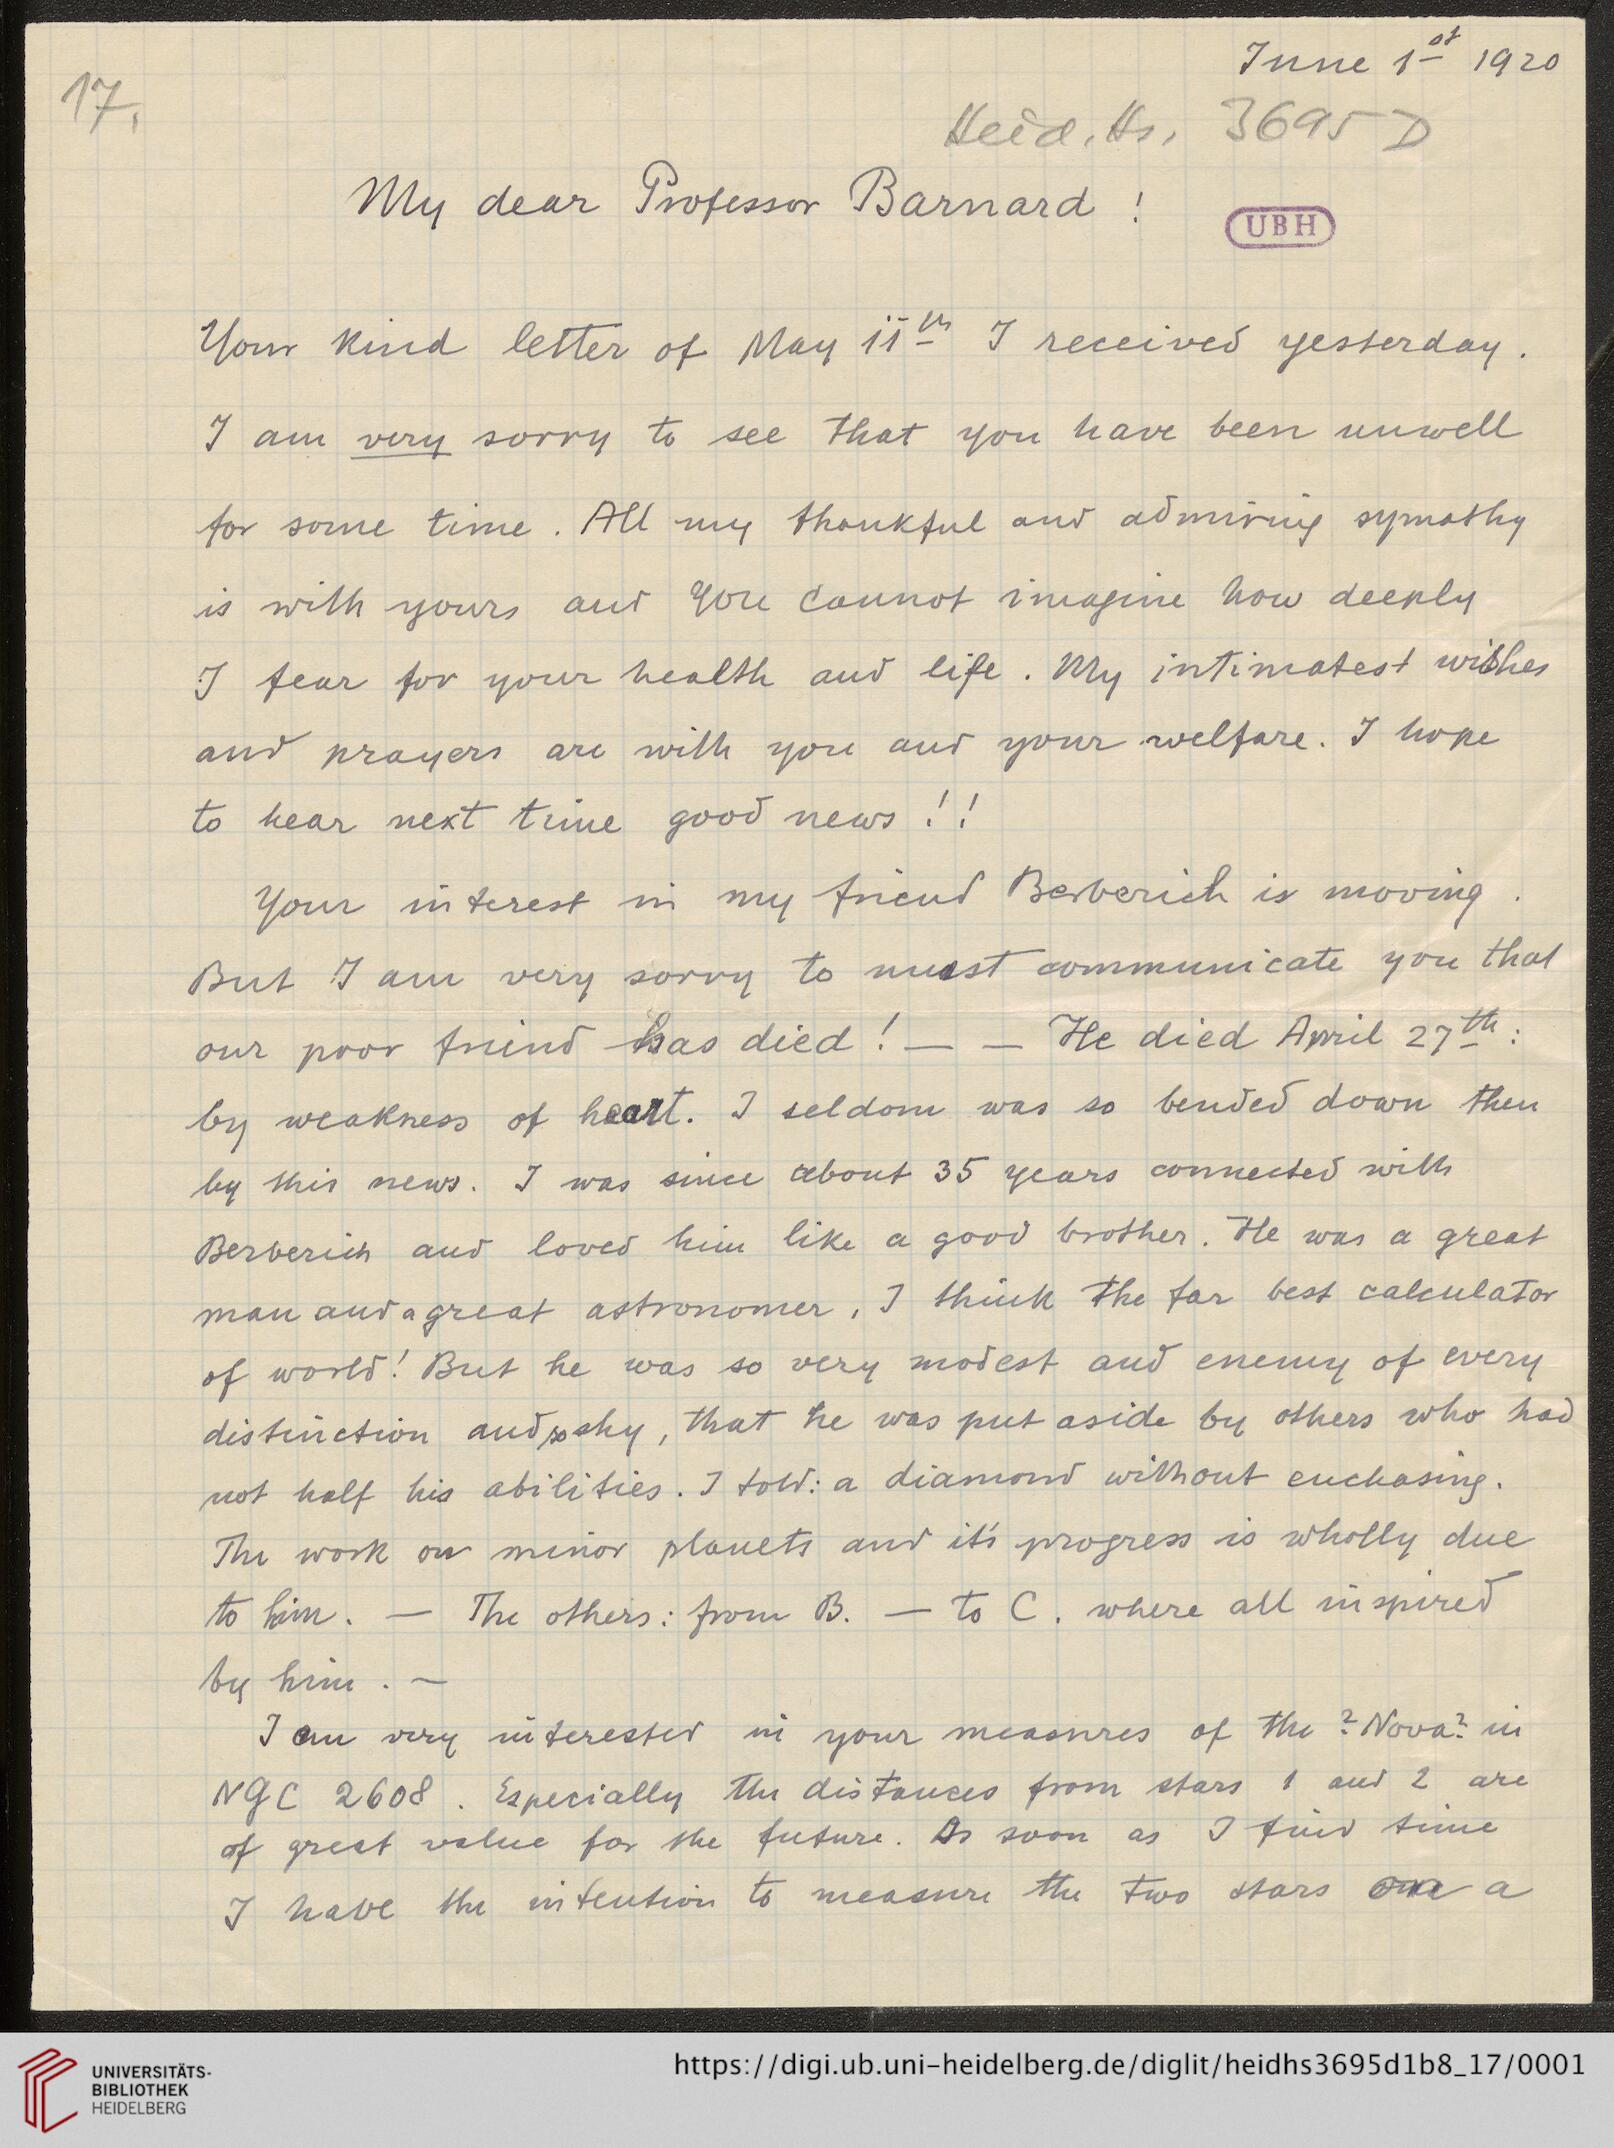 June 1st 1920
17.
Heid. Hs. 3695 D
My dear Professor Barnard !
UBH
Your kind letter of May 11th I received yesterday.
I am very sorry to see that you have been unwell
for some time. All my thankful and admiring sympathy
is with yours and you cannot imagine how deeply
I fear for your health and life. My intimatest wishes
and prayers are with you and your welfare. I hope
to hear next time good news !!
Your interest in my friend Berberich is moving.
But I am very sorry to must communicate you that
our poor friend has died ! — — He died April 27th:
by weakness of heart. I seldom was so bended down then
by this news. I was since about 35 years connected with
Berberich and loved him like a good brother. He was a great
man and a great astronomer, I think the far best calculator
of world! But he was so very modest and enemy of every
distinction and so shy, that he was put aside by others who had
not half his abilities. I told: a diamond without enchasing.
The work on minor planets and it's progress is wholly due
to him. — The others: from B. — to C. where all inspired
by him. —
I am very interested in your measures of the ?Nova? in
NGC 2608. Especially the distances from stars 1 and 2 are
of great value for the future. As soon as I find time
I have the intention to measure the two stars on a
UNIVERSITÄTS-
BIBLIOTHEK
HEIDELBERG
https://digi.ub.uni-heidelberg.de/diglit/heidhs3695d1b8_17/0001